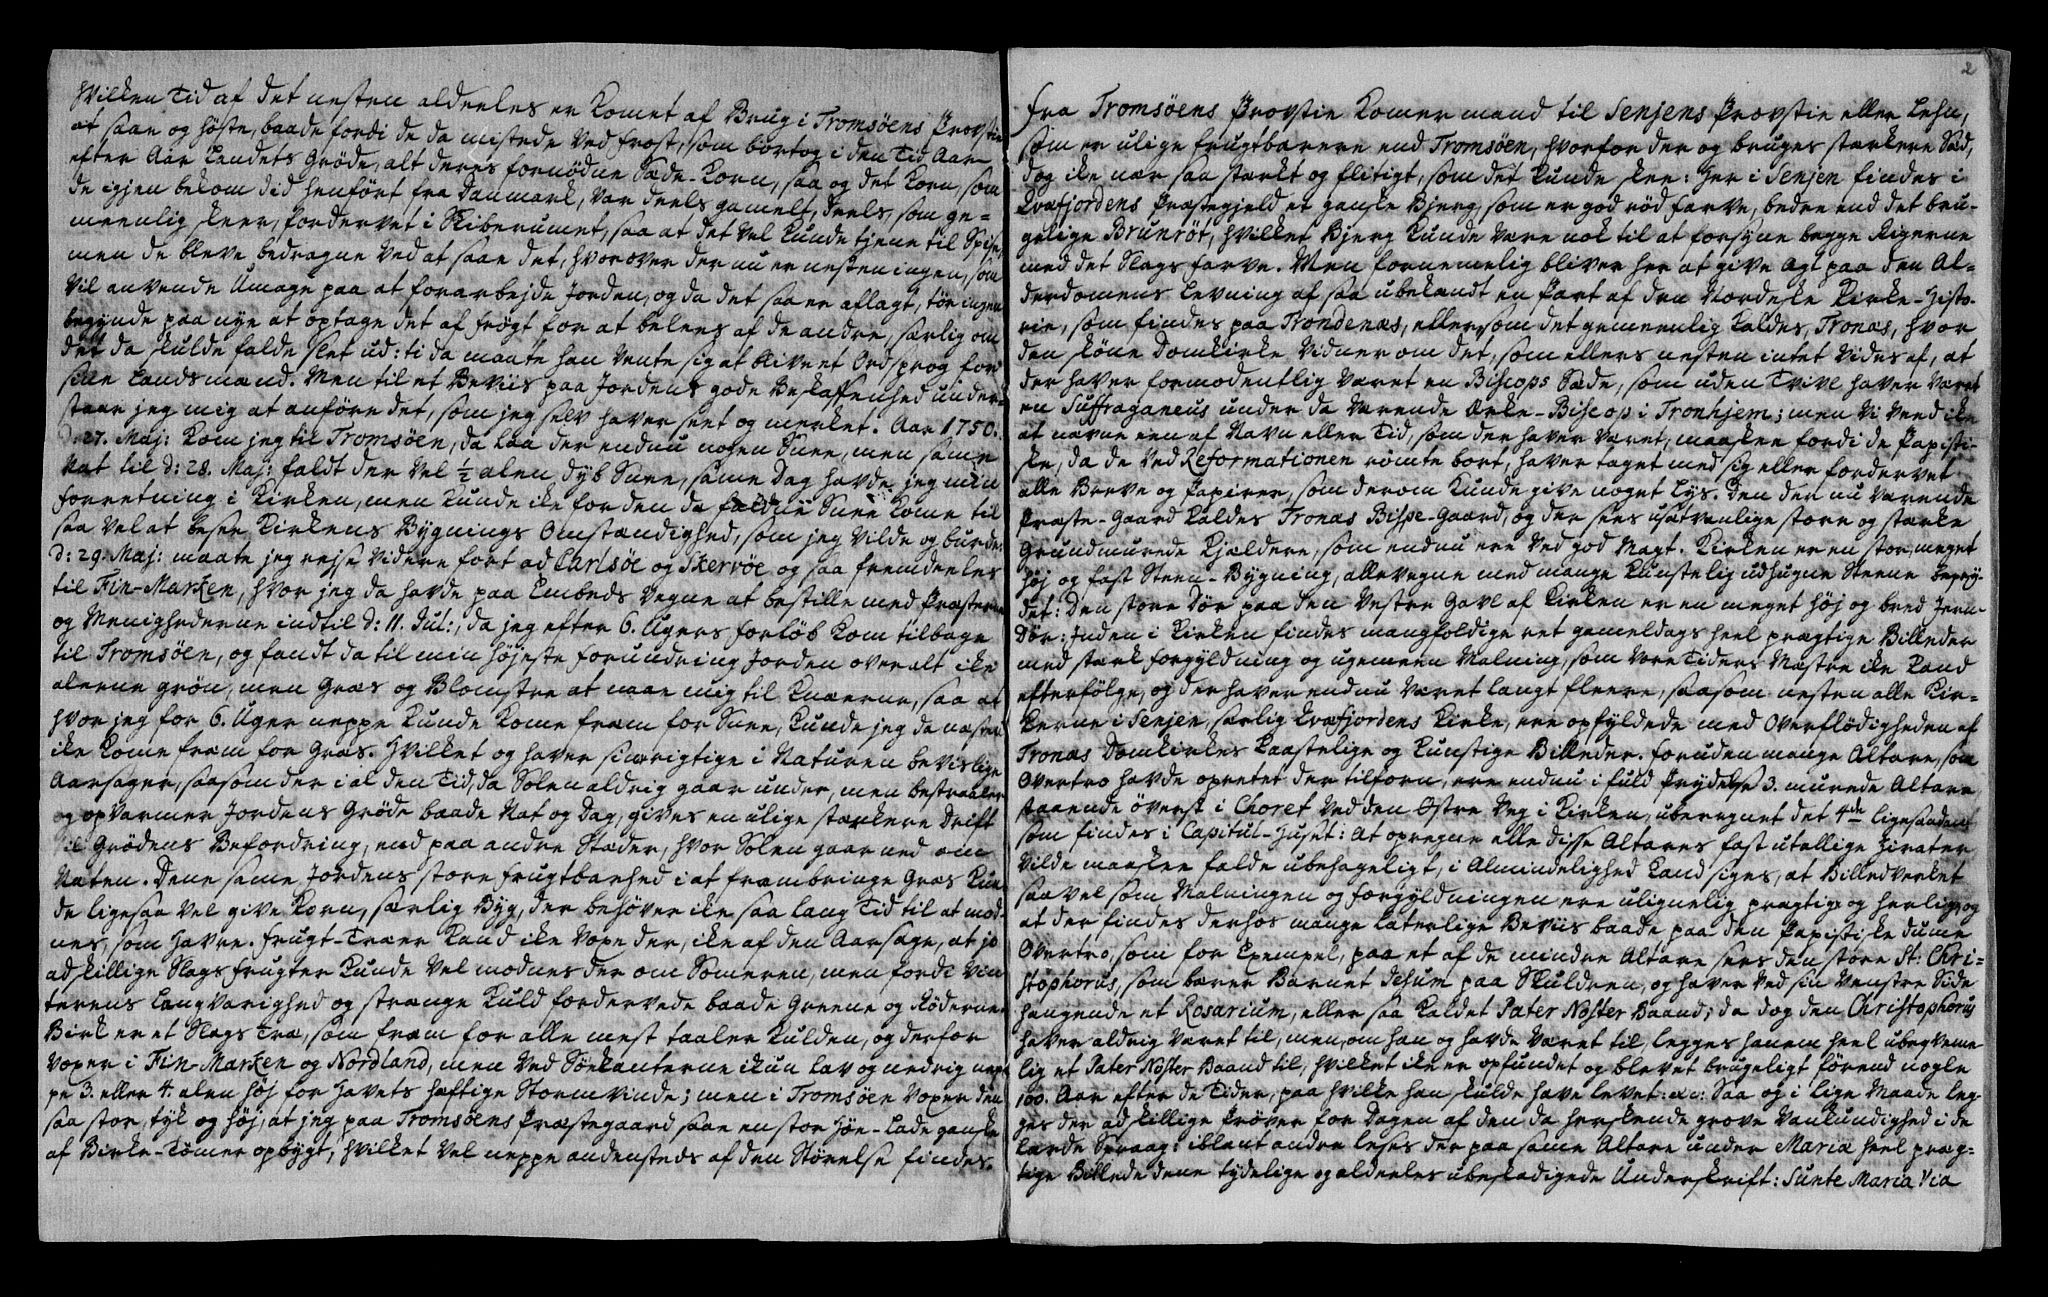 hvilken Tid af det nesten aldeeles er komet af Brug i Tromsøens Provstie
at saae og høste, baade fordi de da mistede ved Frost, som bortog i den Tid Aar
efter Aar Landets Grøde, alt deres fornødne Sæde-Korn, saa og det Korn, som
de igjen bekom did henført fra Danmark, var deels gamelt, deels, som ge-
meenlig skeer, fordervet i Skibsrumet, saa at det vel kunde tjene til Spise,
men de bleve bedragne ved at saae det, hvorover der nu er nesten ingen, som
vil anvende Umage paa at forarbejde Jorden, og da det saa er aflagt, tør ingen
begynde paa nye at optage det af Frygt for at belees af de andre, særlig om
det da skulde falde slet ud: ti da maatte han vente sig at blive et Ordsprog for
sine Landsmænd. Men til et Beviis paa Jordens gode Beskaffenhed under-
staar jeg mig at anføre det, som jeg selv haver seet og merket. Aar 1750.
d: 27. Maj: kom jeg til Tromsøen, da laa der endnu nogen Snee, men same
Nat til d: 28. Maj: faldt der vel ½ alen dyb Snee, same Dag havde jeg min
Forretning i Kirken, men kunde ike for den da faldne Snee kome til
saa vel at besee Kirkens Bygnings Omstændighed, som jeg vilde og burde.
d: 29. Maj: maatte jeg rejse videre fort ad Carlsöe og Skervöe og saa fremdeeles
til Fin-Marken, hvor jeg da havde paa Embeds Vegne at bestille med Præsterne
og Menighederne indtil d: 11. Jul:, da jeg efter 6. Ugers Forløb kom tilbage
til Tromsøen, og fandt da til min højeste Forundring Jorden overalt ike
aleene grøn, men Græs og Blomster at naae mig til Knæerne, saa at
hvor jeg for 6. Uger neppe kunde kome fræm for Snee, kunde jeg da næsten
ike kome fræm for Græs. Hvilket og haver sine rigtige i Naturen bevislige
Aarsager, saasom der i al den Tid, da Solen aldrig gaar under, men bestraaler
og opvarmer Jordens Grøde baade Nat og Dag, gives en ulige stærkere Drift
til Grødens Befordring, end paa andre Stæder, hvor Solen gaar ned om
Natten. Dene same Jordens store Frugtbarhed i at frambringe Græs kun-
de ligesaa vel give Korn, særlig Byg, der behøver ike saa lang Tid til at mod-
nes, som Havre. Frugt-Træer kand ike voxe der, ike af den Aarsage, at jo
adskillige Slags Frugter kunde vel modnes der om Someren, men fordi Vin
terens Langvarighed og strænge Kuld fordervede baade Greene og Rødderne
Birk er et Slags Træ, som fræm for alle mest taaler Kulden, og derfor
voxer i Fin-Marken og Nordland, men ved Søekanterne ikun lav og nedrig nep-
pe 3. eller 4. alen høj for Havets hæftige Stormvinde; men i Tromsøen voxer den
saa stor, tyk og høj, at jeg paa Tromsøens Præstegaard saae en stor Høe-Lade ganske
af Birke-Tømer opbygt, hvilket vel neppe andensteds af den Størelse findes.
2
Fra Tromsøens Provstie komer mand til Senjens Provstie eller Lehn,
som er ulige frugtbarere end Tromsøen, hvorfor der og bruges stærkere Sæd,
dog ike nær saa stærkt og flitigt, som det kunde skee: Her i Senjen findes i
Kvæfjordens Præstegjeld et ganske Bjerg, som er god rød Farve, bedre end det bru-
gelige Brunrøt, hvilket Bjerg kunde være nok til at forsyne begge Rigerne
med det Slags Farve. Men fornemelig bliver her at give Agt paa den Al-
derdomens Levning af saa ubekændt en Part af den Nordske Kirke-Histo-
rie, som findes paa Trondenæs, eller, som det gemeenlig kaldes, Tronæs, hvor
den skøne Domkirke vidner om det, som ellers nesten intet vides af, at
der haver formodentlig været en Biscops Sæde, som uden Tvivl haver været
en Suffraganeus under da værende Ærke-Biscop i Tronhjem; men vi veed ike
at nævne een af Navn eller Tid, som der haver været, maaskee fordi de Papisti-
ske, da de ved Reformationen rømte bort, haver taget med sig eller fordervet
alle Breve og Papirer, som derom kunde give noget Lys. Den der nu værende
Præste-Gaard kaldes Tronæs Bispe-Gaard, og der sees usædvanlige store og stærke
Grundmurede Kjældere, som endnu ere ved god Magt. Kirken er en stor, meget
høj og fast Steen-Bygning, allevegne med mange kunstelig udhugne Steene bepry-
det: Den store Dør paa den Vestre Gavl af Kirken er en meget høj og bred Jern-
Dør: Inden i Kirken findes mangfoldige ret gameldags heel prægtige Billeder
med stærk Forgyldning og ugemeen Malning, som vore Tiders Mæstre ike kand
efterfølge, og der haver endnu været langt fleere, saasom nesten alle Kir-
kerne i Senjen, særlig Kvæfjordens Kirke, ere opfyldede med Overflødigheden af
Tronæs Domkirkes kaastelige og kunstige Billeder. Foruden mange Altare, som
Overtro havde opretet der tilforn, ere endnu i fuld Prydelse 3. murede Altare
staaende øverst i Choret ved den Østre Veg i Kirken, uberegnet det 4de ligesaadent
som findes i Capitul-Huset: At opregne alle disse Altares fast utallige Zirater
vilde maaskee falde ubehageligt, i Almindelighed kand siges, at Billedverket
saa vel som Malningen og Forgyldningen ere ulignelig prægtige og herlige, og
at der findes derhos mange laterlige Beviis baade paa den Papistiske dume
Overtro, som for Exempel, paa et af de mindre Altare sees den store St. Chri-
stophorus, som bærer Barnet Jesum paa Skuldren, og haver ved sin Venstre Side
hængende et Rosarium, eller saa kaldet Pater Noster Baand; da dog den Christophorus
haver aldrig været til, men, om han og havde været til, legges hanem heel ubeqveme-
lig et Pater Noster Baand til, hvilket ike er opfundet og blevet brugeligt førend nogle
100. Aar efter de Tider, paa hvilke han skulde have levet: Saa og i lige Maade leg-
ges der adskillige Prøver for Dagen af den da herskende grove Vankundighed i de
lærde Spraag: iblant andre leses der paa same Altare under Mariæ heel præg-
tige Billede dene tydelige og aldeeles ubeskadigede Underskrift: Sunte Maria Via